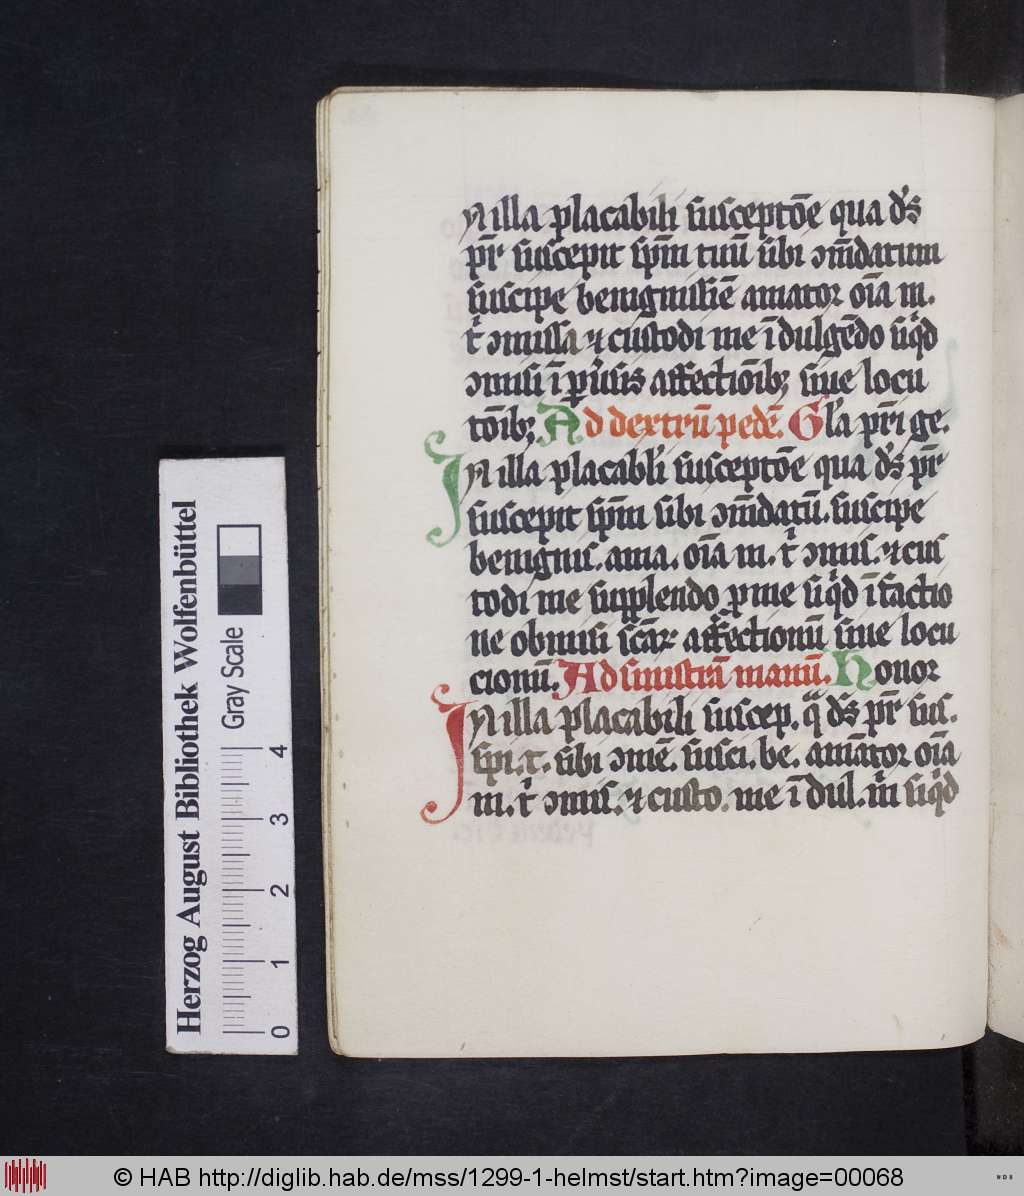 N illa placabili susceptōe qua dˢ
pr̄ suscepit spm̄ tuū sibi ↄm̄datum
suscipe benignissīe amator oīa m.
tͥ ↄmissa ⁊ custodi me īdulgēdo sͥqͥd
ↄmisi ī ꝑuˢsis affectiōibꝫ siue locu
tōibꝫ Ad dextrū pedē. Glˀa pr̄i ge.
JN illa placablˀi susceptōe qua dˢ pr̄
suscepit spm̄ sibi ↄm̄datū. suscipe
benignis. ama. oīa m. tͥ ↄmis. ⁊ cus
todi me supplendo ꝑ me sͥqͥd ī factio
ne obmisi scāꝝ affectionū siue locu
cionū. Ad sinistrā manū. Honor
JN illa placabili suscep. qͣ dˢ pr̄ sus.
spi. t. sibi ↄmē. susci. be. amātor oīa
m. tͥ ↄmis. ⁊ custo. me īdul. mͥ siqͥd
Herzog August Bibliothek Wolfenbüttel
Gray Scale
0 1 2 3 4
© HAB http://diglib.hab.de/mss/1299-1-helmst/start.htm?image=00068